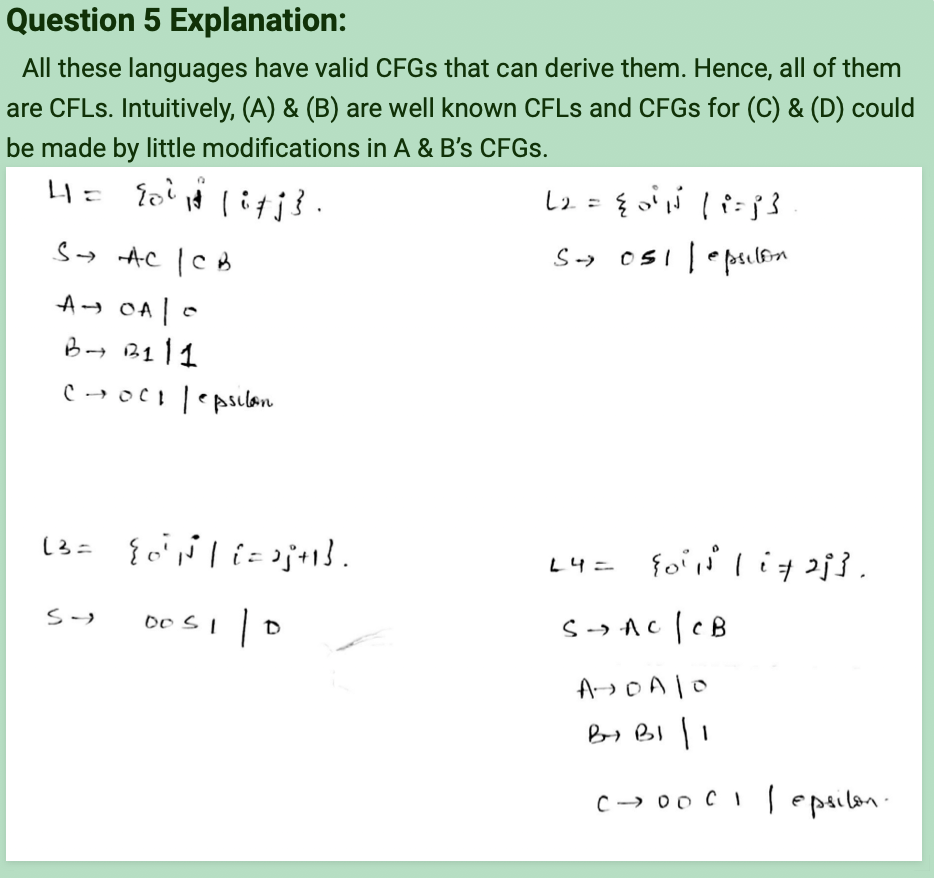 Question 5 Explanation:
All these languages have valid CFGs that can derive them. Hence, all of them
are CFLs. Intuitively, (A) & (B) are well known CFLs and CFGs for (C) & (D) could
be made by little modifications in A & B's CFGs.
L1 = {0ⁱ1ʲ | i≠j}.
S → AC | CB
A → 0A | 0
B → B1 | 1
C → 0C1 | epsilon
L2 = {0ⁱ1ʲ | i=j}
S → 0S1 | epsilon
L3 = {0ⁱ1ʲ | i=2j+1}.
S → 00S1 | 0
L4 = {0ⁱ1ʲ | i≠2j}.
S → AC | CB
A → 0A | 0
B → B1 | 1
C → 00C1 | epsilon.